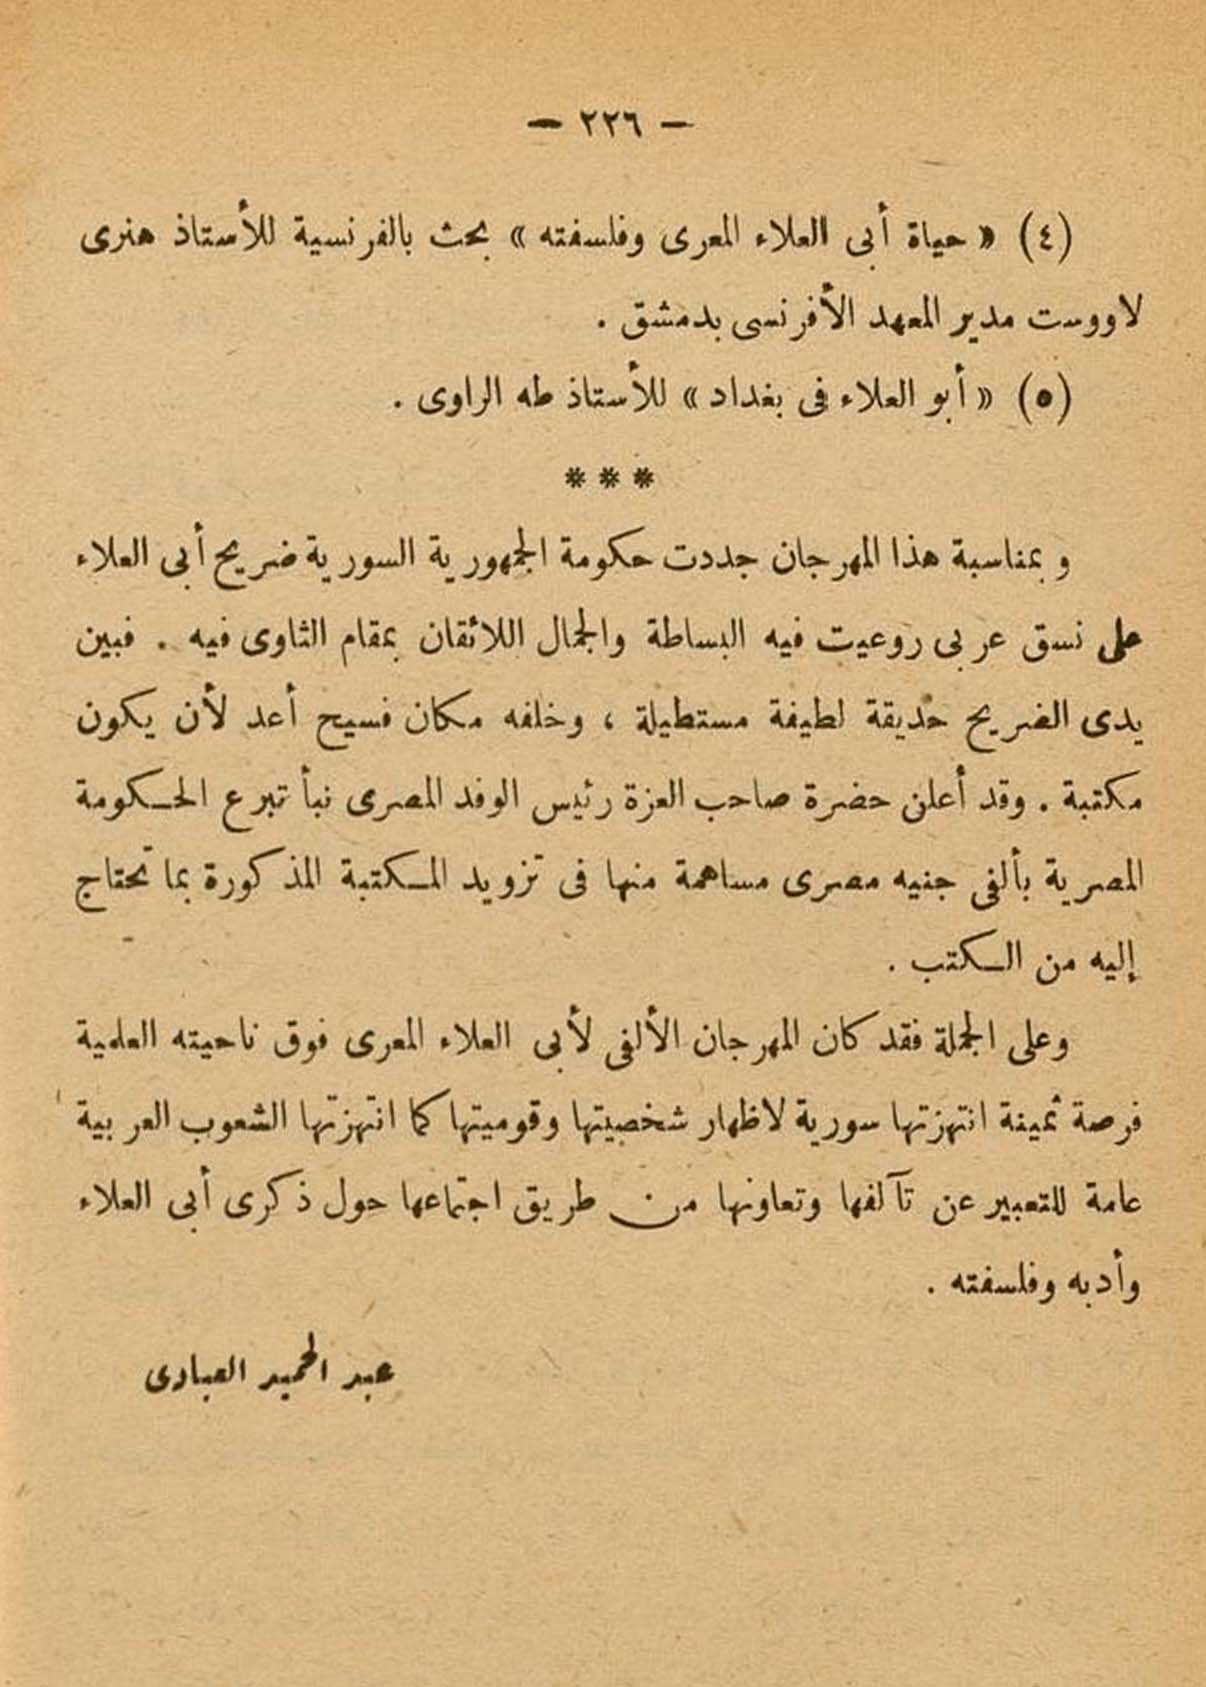 — ٢٢٦ —
(٤) « حياة أبى العلاء المعرى وفلسفته » بحث بالفرنسية للأستاذ هنرى
لاووست مدير المعهد الأفرنسى بدمشق .
(٥) « أبو العلاء فى بغداد » للأستاذ طه الراوى .
* * *
وبمناسبة هذا المهرجان جددت حكومة الجمهورية السورية ضريح أبى العلاء
على نسق عربى روعيت فيه البساطة والجمال اللائقان بمقام الثاوى فيه . فبين
يدى الضريح حديقة لطيفة مستطيلة ، وخلفه مكان فسيح أعد لأن يكون
مكتبة . وقد أعلن حضرة صاحب العزة رئيس الوفد المصرى نبأ تبرع الحكومة
المصرية بألفى جنيه مصرى مساهمة منها فى تزويد المكتبة المذكورة بما تحتاج
إليه من الكتب .
وعلى الجملة فقد كان المهرجان الألفى لأبى العلاء المعرى فوق ناحيته العلمية
فرصة ثمينة انتهزتها سورية لاظهار شخصيتها وقوميتها كما انتهزتها الشعوب العربية
عامة للتعبير عن تآلفها وتعاونها من طريق اجتماعها حول ذكرى أبى العلاء
وأدبه وفلسفته .
عبد الحميد العبادى